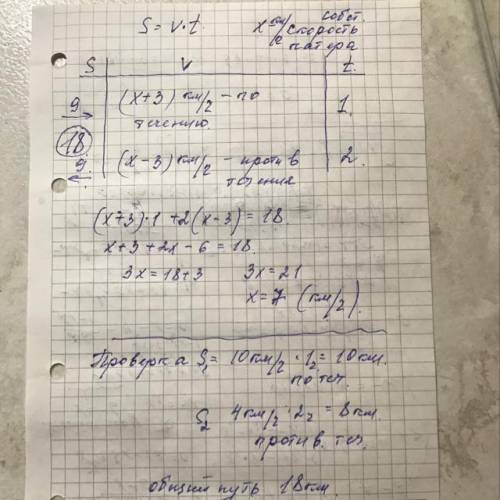 S = v·t x км/ч собст. скорость катера
S v t.
9 (x+3) км/ч - по 1.
течению.
18
9 (x-3) км/ч - против 2.
течения
(x+3)·1 + 2(x-3) = 18
x+3+2x-6 = 18.
3x = 18+3 3x = 21
x = 7 (км/ч).
Проверка S₁ = 10 км/ч · 1ч = 10 км.
по теч.
S₂ 4 км/ч · 2ч = 8 км
против. теч.
общий путь 18 км.